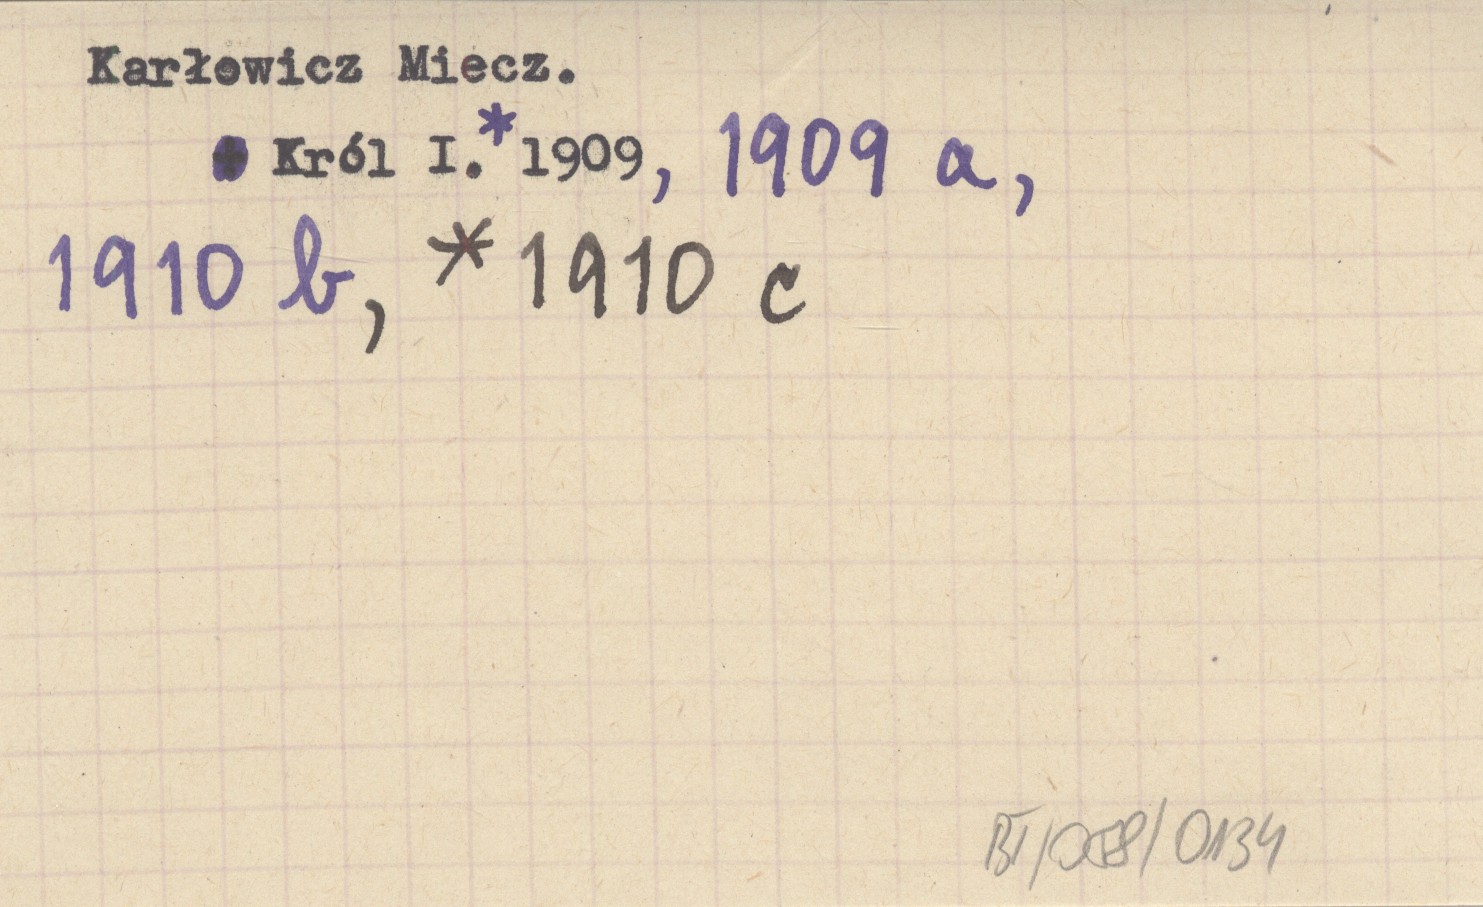 Karłowicz Miecz.
Król I.* 1909, 1909 a,
1910 b, *1910 c
BT/058/0134